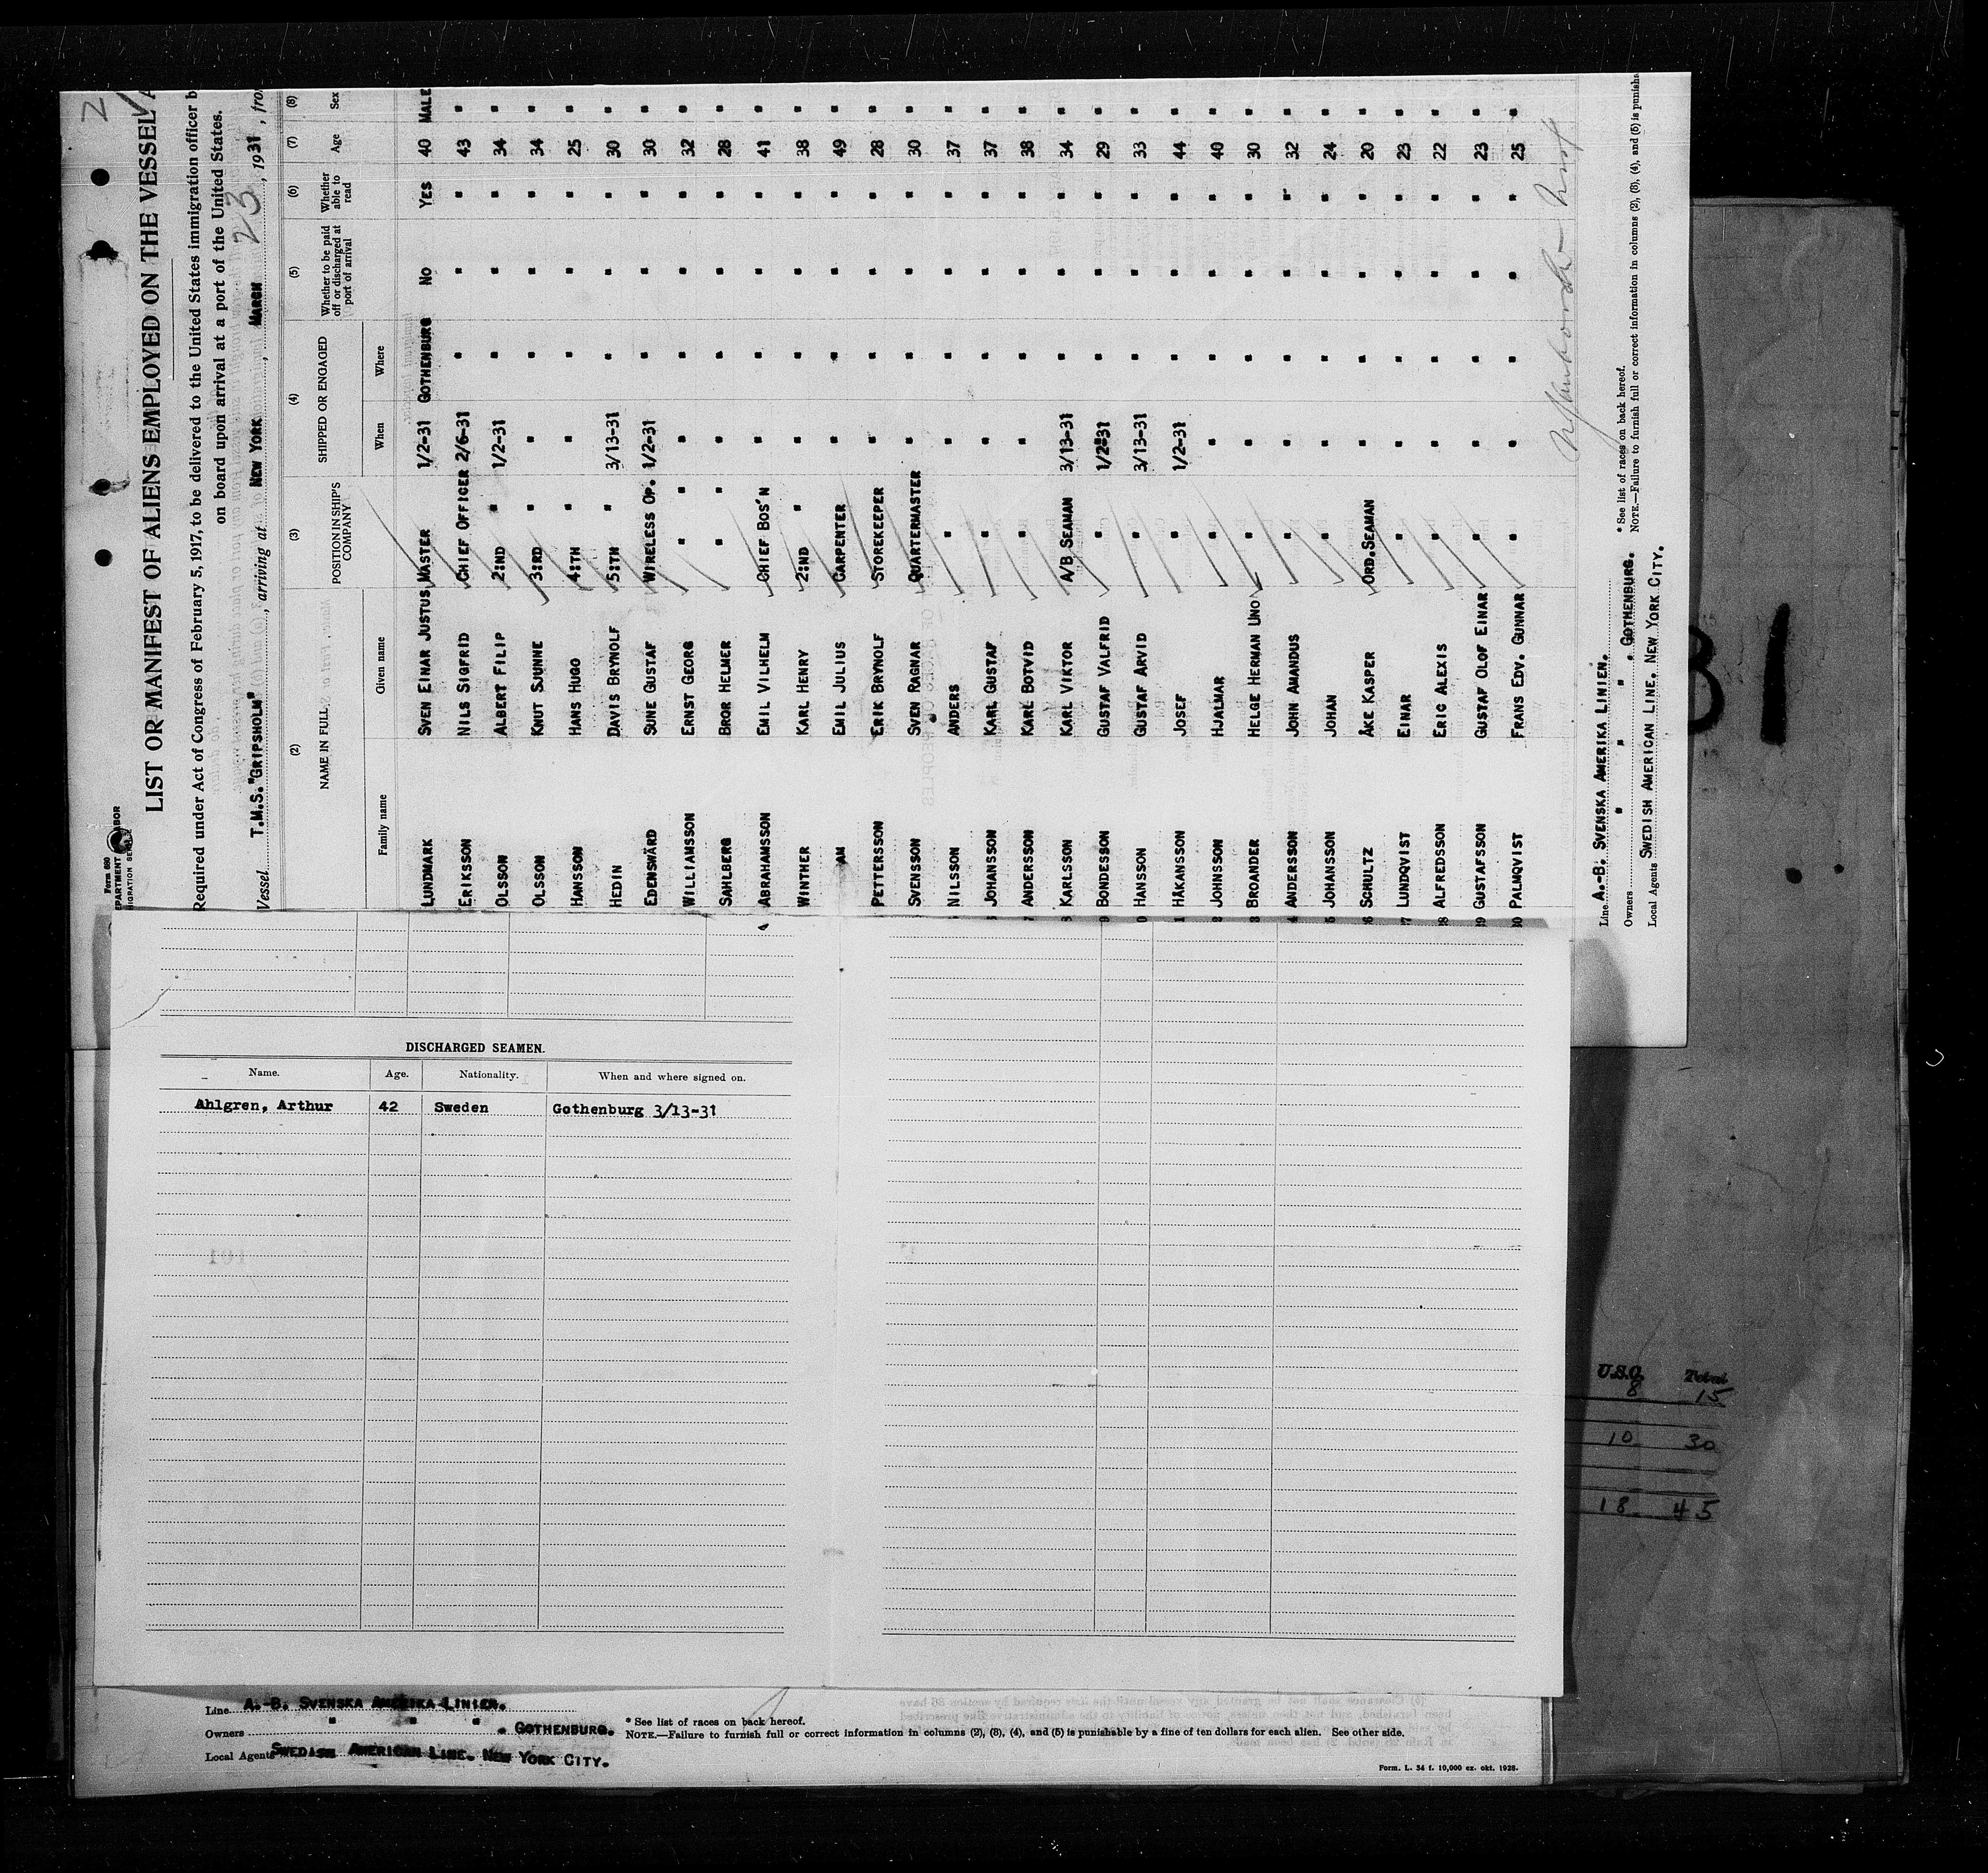 2
Form 680
LIST OR MANIFEST OF ALIENS EMPLOYED ON THE VESSEL A
Required under Act of Congress of February 5, 1917, to be delivered to the United States immigration officer b
on board upon arrival at a port of the United States.
Vessel T.M.S."GRIPSHOLM", arriving at NEW YORK, MARCH 23, 1931, fro
(2) (3) (4) (5) (6) (7) (8)
NAME IN FULL POSITION IN SHIP'S COMPANY SHIPPED OR ENGAGED Whether to be paid off or discharged at port of arrival Whether able to read Age Sex
Family name Given name When Where
LUNDMARK SVEN EINAR JUSTUS MASTER 1/2-31 GOTHENBURG NO YES 40 MALE
ERIKSSON NILS SIGFRID CHIEF OFFICER 2/6-31 " " " 43 "
OLSSON ALBERT FILIP 2:ND " 1/2-31 " " " 34 "
OLSSON KNUT SJUNNE 3:RD " " " " " 34 "
HANSSON HANS HUGO 4:TH " " " " " 25 "
HEDIN DAVIS BRYNOLF 5:TH " 3/13-31 " " " 30 "
EDENSWÄRD SUNE GUSTAF WIRELESS OP. 1/2-31 " " " 30 "
WILLIAMSSON ERNST GEORG " " " " " " 32 "
SAHLBERG BROR HELMER " " " " " " 28 "
ABRAHAMSSON EMIL VILHELM CHIEF BOS'N " " " " 41 "
WINTHER KARL HENRY 2:ND " " " " " 38 "
AM EMIL JULIUS CARPENTER " " " " 49 "
PETTERSSON ERIK BRYNOLF STOREKEEPER " " " " 28 "
SVENSSON SVEN RAGNAR QUARTERMASTER " " " " 30 "
NILSSON ANDERS " " " " " 37 "
JOHANSSON KARL GUSTAF " " " " " 37 "
7 ANDERSSON KARL BOTVID " " " " " 38 "
8 KARLSSON KARL VIKTOR A/B SEAMAN 3/13-31 " " " 34 "
9 BONDESSON GUSTAF VALFRID " 1/2-31 " " " 29 "
0 HANSSON GUSTAF ARVID " 3/13-31 " " " 33 "
1 HÅKANSSON JOSEF " 1/2-31 " " " 44 "
2 JOHNSSON HJALMAR " " " " " 40 "
3 BROANDER HELGE HERMAN UNO " " " " " 30 "
4 ANDERSSON JOHN AMANDUS " " " " " 32 "
5 JOHANSSON JOHAN " " " " " 24 "
6 SCHULTZ ÅKE KASPER ORD.SEAMAN " " " " 20 "
7 LUNDQVIST EINAR " " " " " 23 "
8 ALFREDSSON ERIC ALEXIS " " " " " 22 "
29 GUSTAFSSON GUSTAF OLOF EINAR " " " " " 23 "
30 PALMQVIST FRANS EDV. GUNNAR " " " " " 25 "
Line A.-B. SVENSKA AMERIKA LINIEN.
Owners " " " . GOTHENBURG.
Local Agents SWEDISH AMERICAN LINE. NEW YORK CITY.
* See list of races on back hereof.
NOTE.—Failure to furnish full or correct information in columns (2), (3), (4), and (5) is punisha
DISCHARGED SEAMEN.
Name. Age. Nationality. When and where signed on.
Ahlgren, Arthur 42 Sweden Gothenburg 3/13-31
Line A.-B. SVENSKA AMERIKA LINIEN.
Owners " " " . GOTHENBURG.
Local Agents SWEDISH AMERICAN LINE. NEW YORK CITY.
* See list of races on back hereof.
NOTE.—Failure to furnish full or correct information in columns (2), (3), (4), and (5) is punishable by a fine of ten dollars for each alien. See other side.
Form. L. 34 f. 10,000 ex. okt. 1928.
31
U.S.C. Total
8 15
10 30
18 45